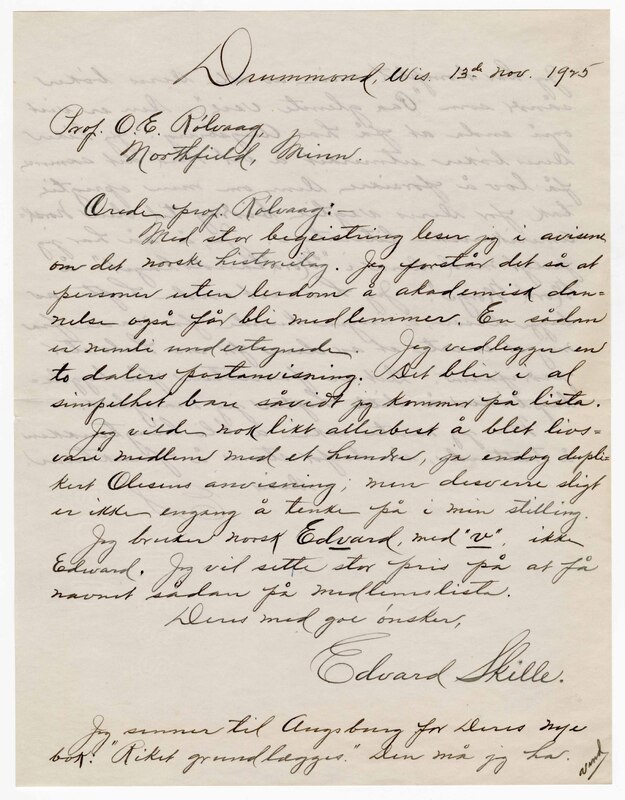 Drummond, Wis. 13de nov. 1925
Prof. O. E. Rølvaag,
Northfield, Minn.
Ærede prof. Rølvaag:
Med stor begeistring leser jeg i avisene
om det norske historielag. Jeg forstår det så at
personer uten lerdom å akademisk dan=
nelse også får bli medlemmer. En sådan
er nemli undertegnede. Jeg vedlegger en
to dalers postanvisning. Det blir i al
simpelhet bare såvidt jeg kommer på lista.
Jeg vilde nok likt allerbest å blet livs=
vari medlem med et hundre, ja endog dupli=
kert Olesens anvisning; men desverre sligt
er ikke engang å tenke på i min stilling.
Jeg bruker norsk Edvard, med "v", ikke
Edward. Jeg vil sette stor pris på at få
navnet sådan på medlemslista.
Deres med goe ønsker,
Edvard Skille.
Jeg senner til Augsburg for Deres nye
bok: "Riket grundlægges." Den må jeg ha.
vend